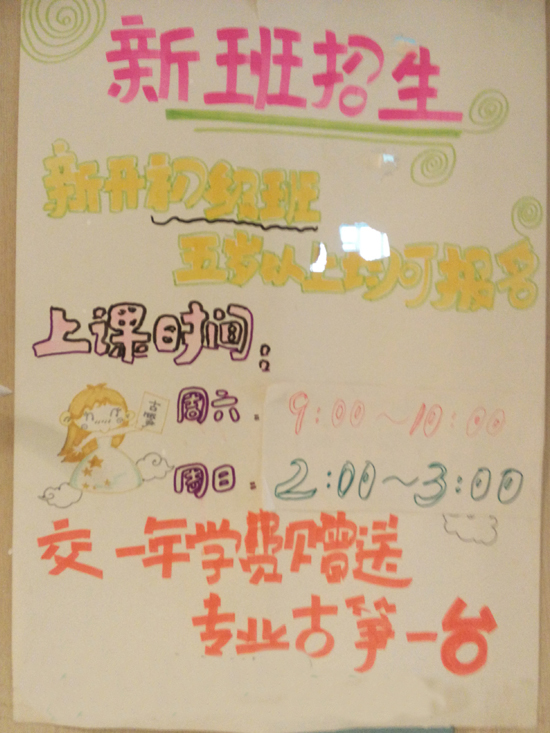 新班招生
新开初级班
五岁以上均可报名
上课时间：
古筝
周六：9:00～10:00
周日：2:00～3:00
交一年学费赠送
专业古筝一台